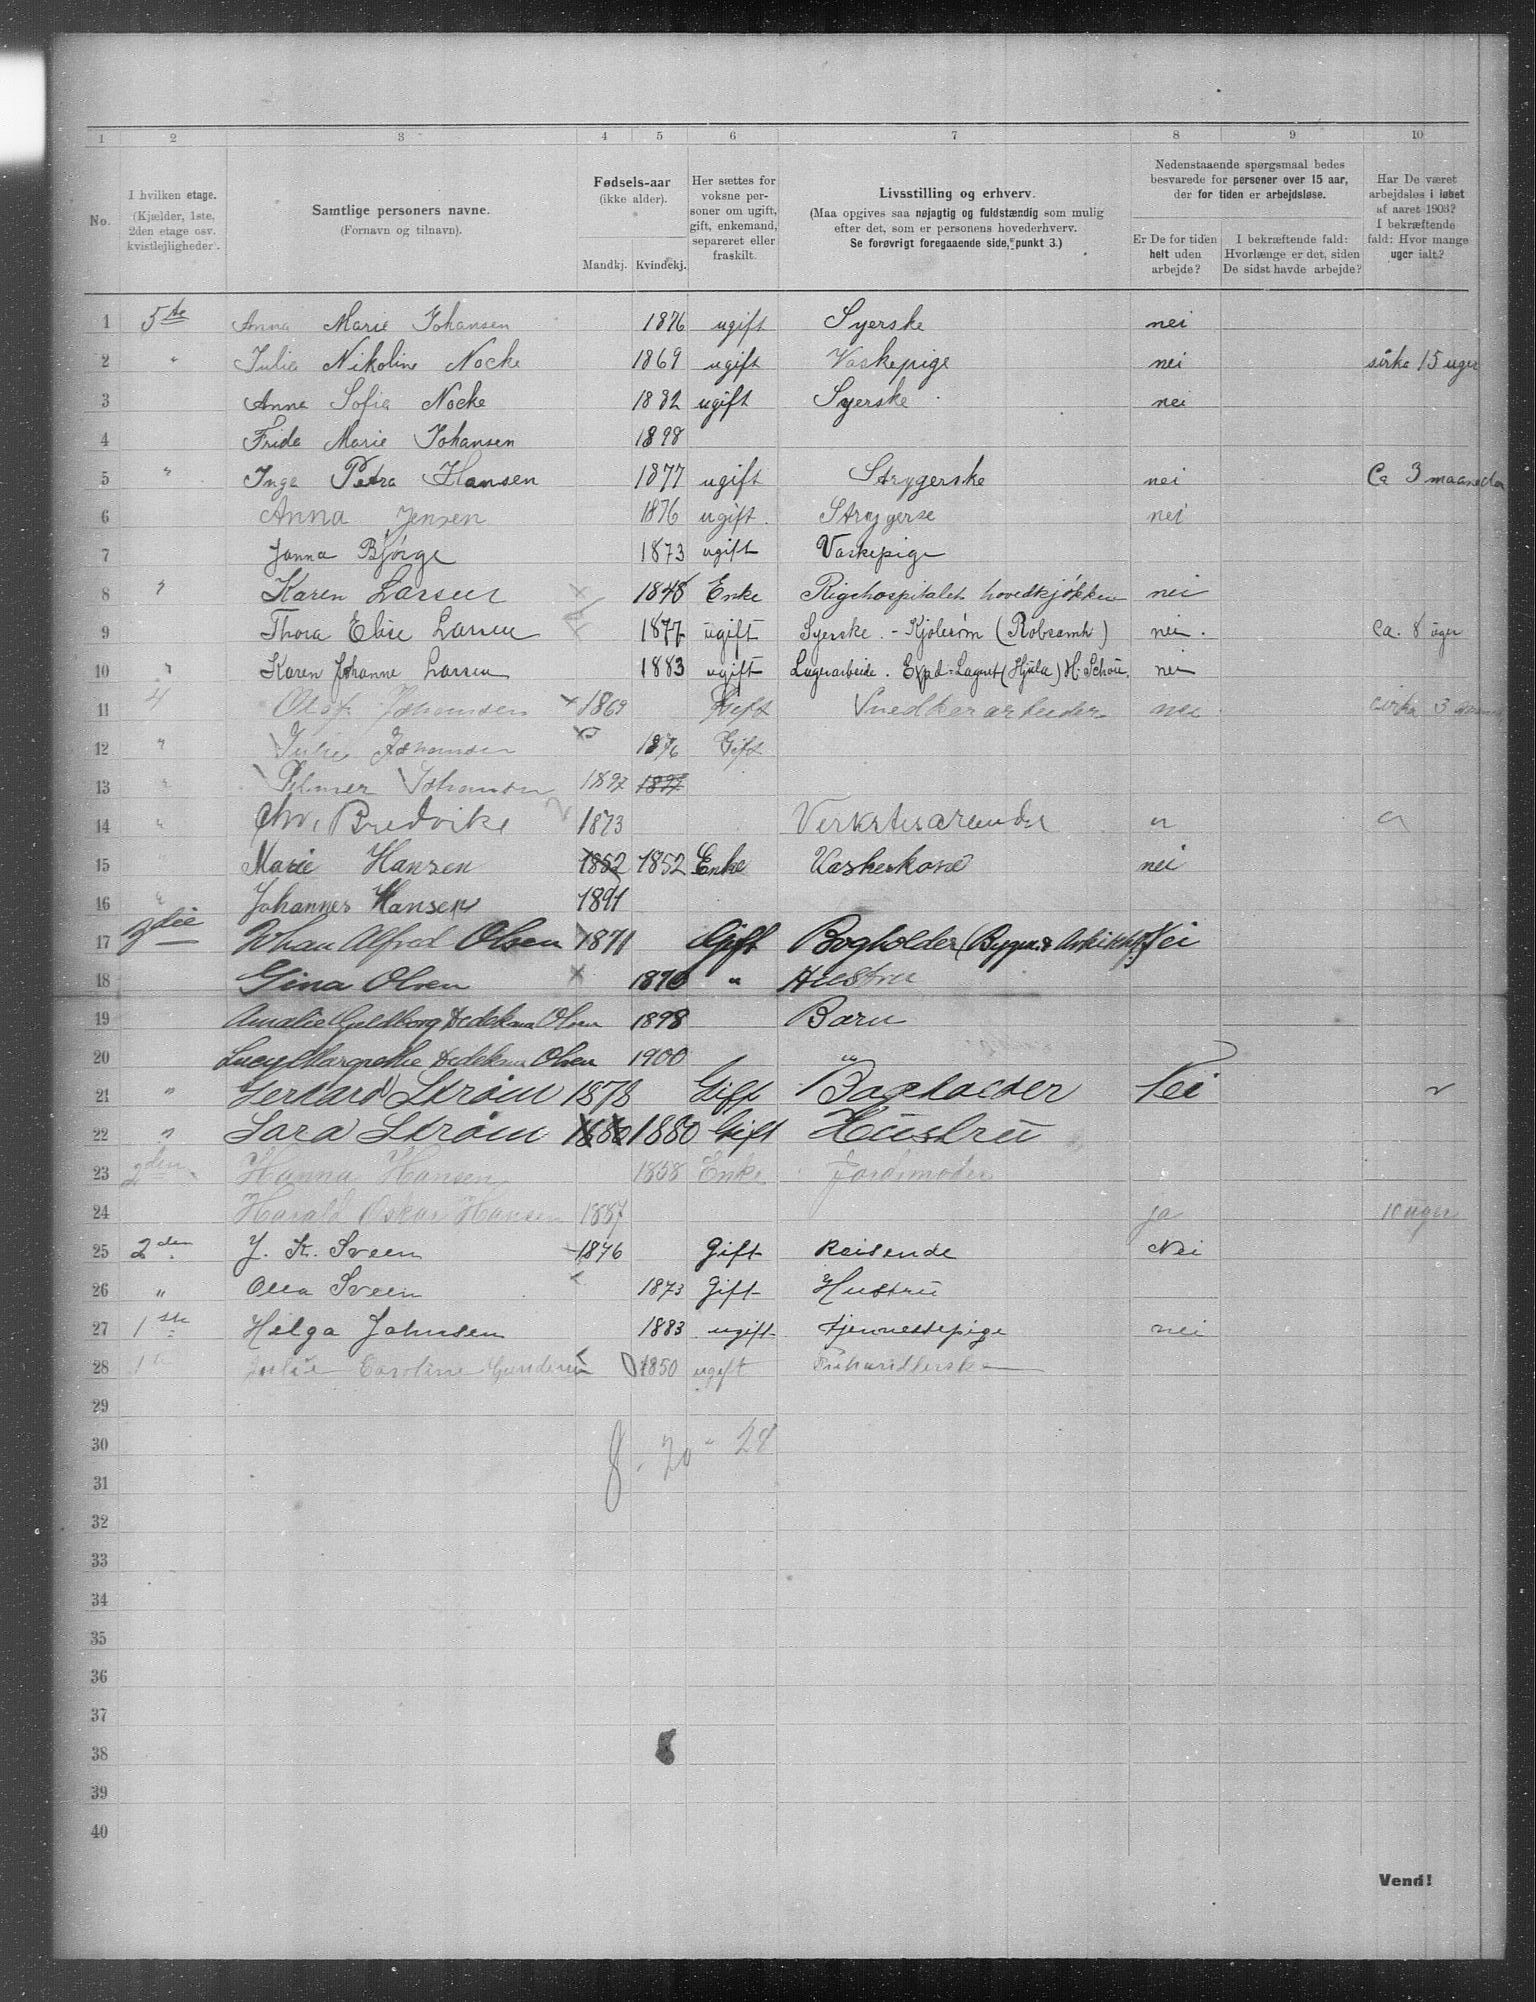 1 2 3 4 5 6 7 8 9 10
No.
I hvilken etage.
(Kjælder, 1ste,
2den etage osv.
kvistlejligheder.
Samtlige personers navne.
(Fornavn og tilnavn).
Fødsels-aar
(ikke alder).
Mandkj. Kvindekj.
Her sættes for
voksne per-
soner om ugift,
gift, enkemand,
separeret eller
fraskilt.
Livsstilling og erhverv.
(Maa opgives saa nøjagtig og fuldstændig som mulig
efter det, som er personens hovederhverv.
Se forøvrigt foregaaende side, punkt 3.)
Nedenstaaende spørgsmaal bedes
besvarede for personer over 15 aar,
der for tiden er arbejdsløse.
Er De for tiden
helt uden
arbejde?
I bekræftende fald:
Hvorlænge er det, siden
De sidst havde arbejde?
Har De været
arbejdsløs i løbet
af aaret 1903?
I bekræftende
fald: Hvor mange
uger ialt?
1 5te Anna Marie Johansen 1876 ugift Syerske nei
2 " Julia Nikoline Nocke 1869 ugift Vaskepige nei sirka 15 uger
3 Anna Sofia Nocke 1882 ugift Syerske nei
4 Frida Marie Johansen 1898
5 " Inga Petra Hansen 1877 ugift Strygerske nei Ca 3 maaneder
6 Anna Jensen 1876 ugift Strygerse nei
7 Janna Bjørge 1873 ugift Vaskepige
8 " Karen Larsen 1848 Enke Rigshospitalet hovedkjøkken nei
9 Thora Elise Larsen 1877 ugift Syerske. - Kjolesøm (Robsamh) nei. ca. 8 uger
10 " Karen Johanne Larsen 1883 ugift Lagerarbeide. Expd-Lagret (Hjula) H. Schou. nei
11 4 Olaf Johansen 1869 Gift Snedkerarbeider nei cirka 3
12 " Julie Johansen 1876 Gift
13 " Johansen 1897 1897
14 " Chr. Bredvike 1873
15 " Marie Hansen 1852 1852 Enke Vaskerkone nei
16 " Johannes Hansen 1891
17 3die Johan Alfred Olsen 1871 Gift Bogholder Nei
18 Gina Olsen 1876 " Hustru
19 Amalie Guldborg Olsen 1898 Barn
20 Lucy Margrethe Olsen 1900 "
21 " Gerhard Strøm 1878 Gift Bogholder Nei
22 " Sara Strøm 1880 1880 Gift Hustru
23 2den Hanna Hansen 1858 Enke Jordmoder
24 Harald Oskar Hansen 1887 ja 10 uger
25 2den J. K. Sveen 1876 Gift Reisende Nei
26 " Olla Sveen 1873 Gift Hustru
27 1ste Helga Johnsen 1883 ugift tjennestepige nei
28 1ste Julie Caroline Gundersen 1850 ugift
29
30 8. 20 - 28
31
32
33
34
35
36
37
38
39
40
Vend!